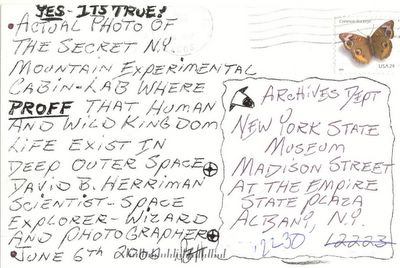 YES - ITS TRUE!
• ACTUAL PHOTO OF
THE SECRET N.Y.
MOUNTAIN EXPERIMENTAL
CABIN-LAB WHERE
PROFF THAT HUMAN
AND WILD KINGDOM
LIFE EXIST IN
DEEP OUTER SPACE
DAVID B. HERRIMAN
SCIENTIST-SPACE
EXPLORER-WIZARD
AND PHOTOGRAPHER
• JUNE 6TH
USA 24
ARCHIVES DEPT
NEW YORK STATE
MUSEUM
MADISON STREET
AT THE EMPIRE
STATE PLAZA
ALBANY, N.Y.
12230 12223